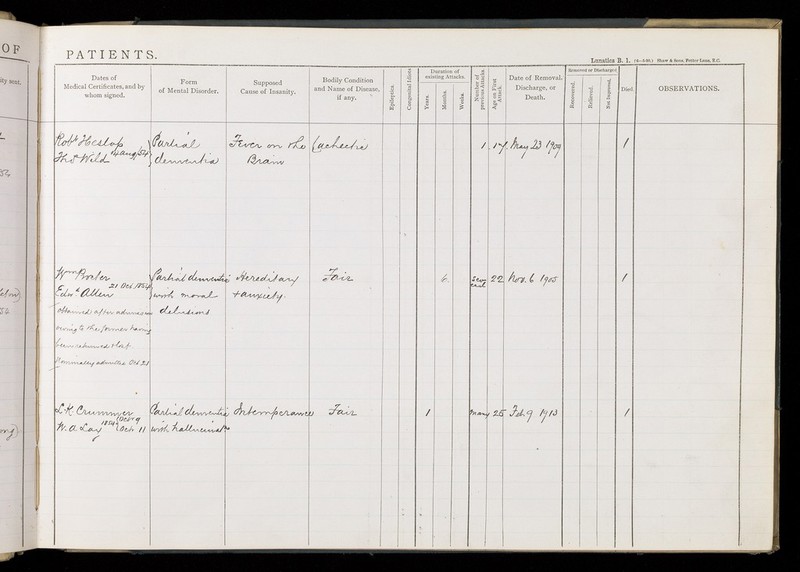 OF
PATIENTS.
Lunatics B. 1. Shaw & Sons, Fetter Lane, E.C.
ity sent.
Dates of
Medical Certificates, and by
whom signed.
Form
of Mental Disorder.
Supposed
Cause of Insanity.
Bodily Condition
and Name of Disease,
if any.
Epileptics
Congenital Idiots
Duration of
existing Attacks.
Years
Months.
Weeks.
Number of
previous Attacks.
Age on First
Attack
Date of Removal,
Discharge, or
Death.
Removed or Discharged
Recovered.
Relieved.
Not Improved.
Died
OBSERVATIONS.
Robt Heslop Partial Fever on the Cachectic 1 17 May 23 1909 1
Thos Wild 14 Aug/54 dementia Brain
Wm Porter Partial dementia Hereditary Fair 6 Seve 22 Nov. 6 1905 1
Edwd Allen 21 Oct 1854 with moral + anxiety. ral
obtained after admission delusions
owing to the former having
been returned + lost.
Nominally admitted Oct 21
L K Crummer Partial dementia Intemperance Fair 1 many 25 Feb 9 1913 1
W. A Lay 1854 Oct 9 Oct 11 with hallucinatns